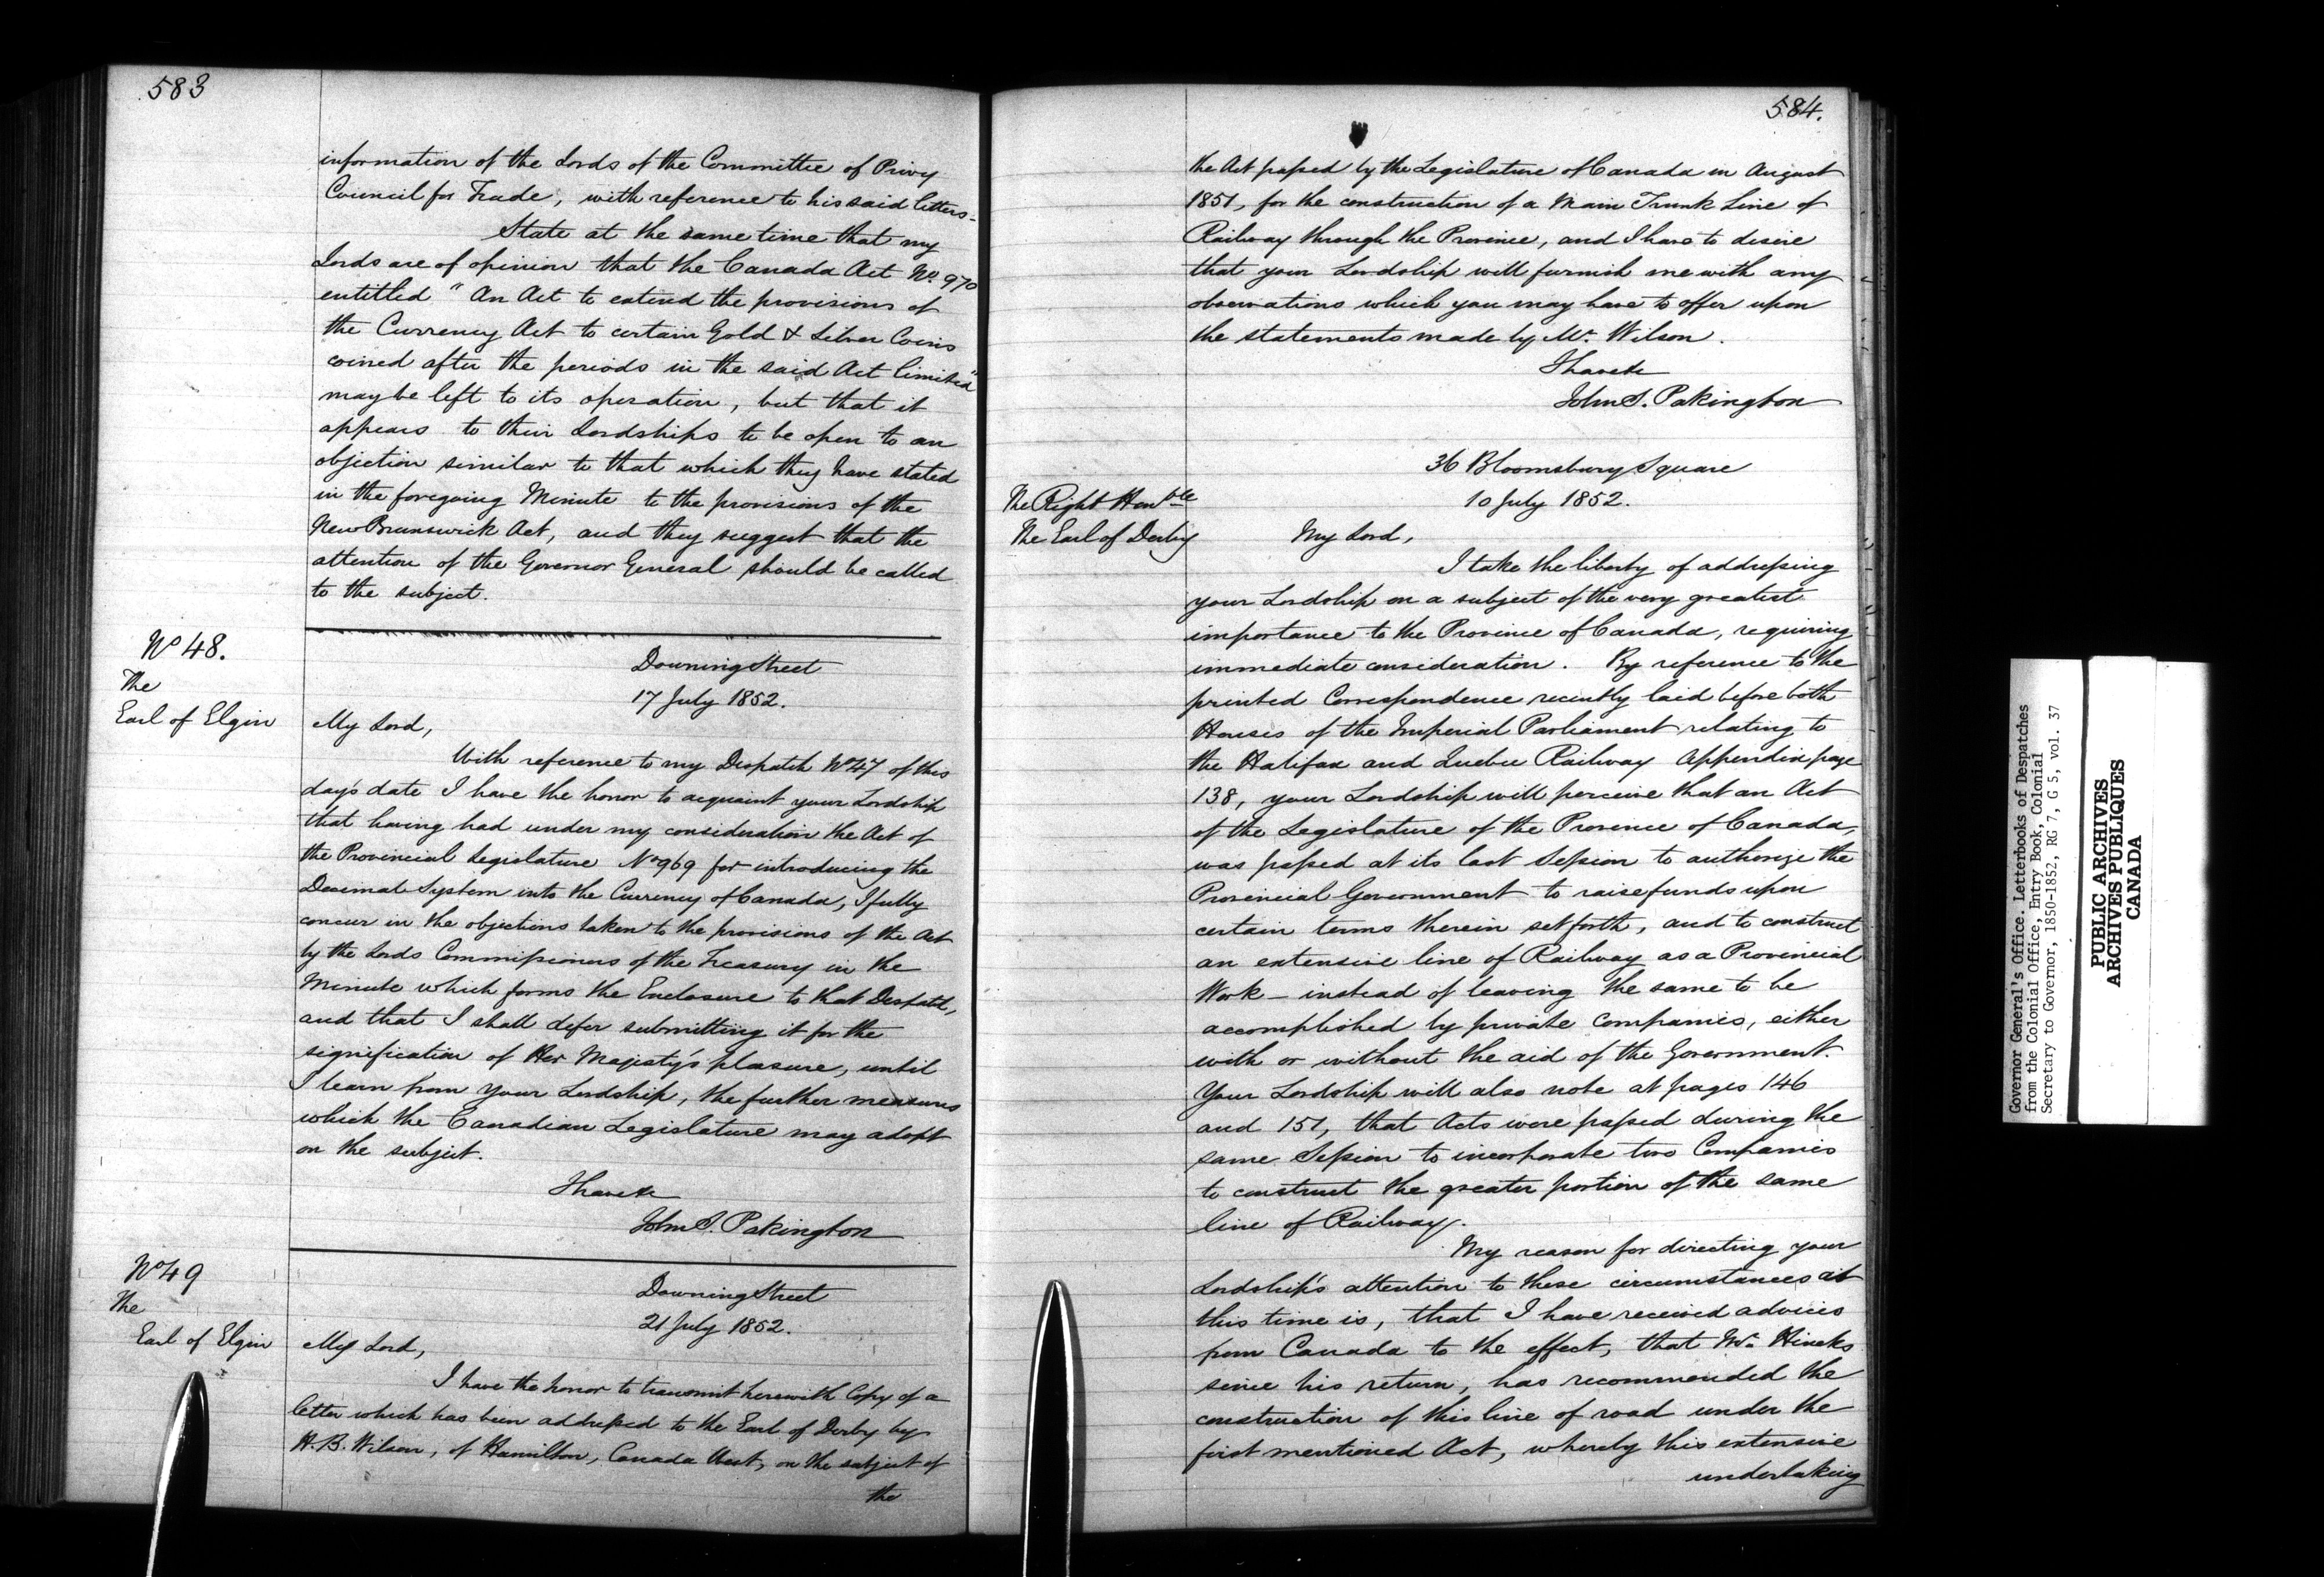 583
information of the Lords of the Committee of Privy
Council for Trade, with reference to his said letters-
State at the same time that my
Lords are of opinion that the Canada Act No. 970
entitled "An Act to extend the provisions of
the Currency Act to certain Gold & Silver Coins
coined after the periods in the said Act limited"
may be left to its operation, but that it
appears to their Lordships to be open to an
objection similar to that which they have stated
in the foregoing Minute to the provisions of the
New Brunswick Act, and they suggest that the
attention of the Governor General should be called
to the subject.
No 48.
The
Earl of Elgin
Downing Street
17 July 1852.
My Lord,
With reference to my Despatch No 47 of this
day's date I have the honor to acquaint your Lordship
that having had under my consideration the Act of
the Provincial Legislature No 969 for introducing the
Decimal System into the Currency of Canada, I fully
concur in the objections taken to the provisions of the Act
by the Lords Commissioners of the Treasury in the
Minute which forms the Enclosure to that Despatch,
and that I shall defer submitting it for the
signification of Her Majesty's pleasure, until
I learn from your Lordship, the further measures
which the Canadian Legislature may adopt
on the subject.
I have &c
John S. Pakington
No 49
The
Earl of Elgin
Downing Street
21 July 1852.
My Lord,
I have the honor to transmit herewith Copy of a
letter which has been addressed to the Earl of Derby by
H. B. Wilson, of Hamilton, Canada West, on the subject of
the
584.
the Act passed by the Legislature of Canada in August
1851, for the construction of a Main Trunk Line of
Railway through the Province, and I have to desire
that your Lordship will furnish me with any
observations which you may have to offer upon
the statements made by Mr. Wilson.
I have &c
John S. Pakington
36 Bloomsbury Square
10 July 1852.
The Right Honble
The Earl of Derby
My Lord,
I take the liberty of addressing
your Lordship on a subject of the very greatest
importance to the Province of Canada, requiring
immediate consideration. By reference to the
printed Correspondence recently laid before both
Houses of the Imperial Parliament relating to
the Halifax and Quebec Railway Appendix page
138, your Lordship will perceive that an Act
of the Legislature of the Province of Canada,
was passed at its last Session to authorize the
Provincial Government to raise funds upon
certain terms therein set forth, and to construct
an extensive line of Railway as a Provincial
Work - instead of leaving the same to be
accomplished by private companies, either
with or without the aid of the Government.
Your Lordship will also note at pages 146
and 151, that Acts were passed during the
same Session to incorporate two Companies
to construct the greater portion of the same
line of Railway.
My reason for directing your
Lordship's attention to these circumstances at
this time is, that I have received advices
from Canada to the effect, that Mr. Hincks
since his return, has recommended the
construction of this line of road under the
first mentioned Act, whereby this extensive
undertaking
Governor General's Office. Letterbooks of Despatches
from the Colonial Office, Entry Book, Colonial
Secretary to Governor, 1850-1852, RG 7, G 5, vol. 37
PUBLIC ARCHIVES
ARCHIVES PUBLIQUES
CANADA